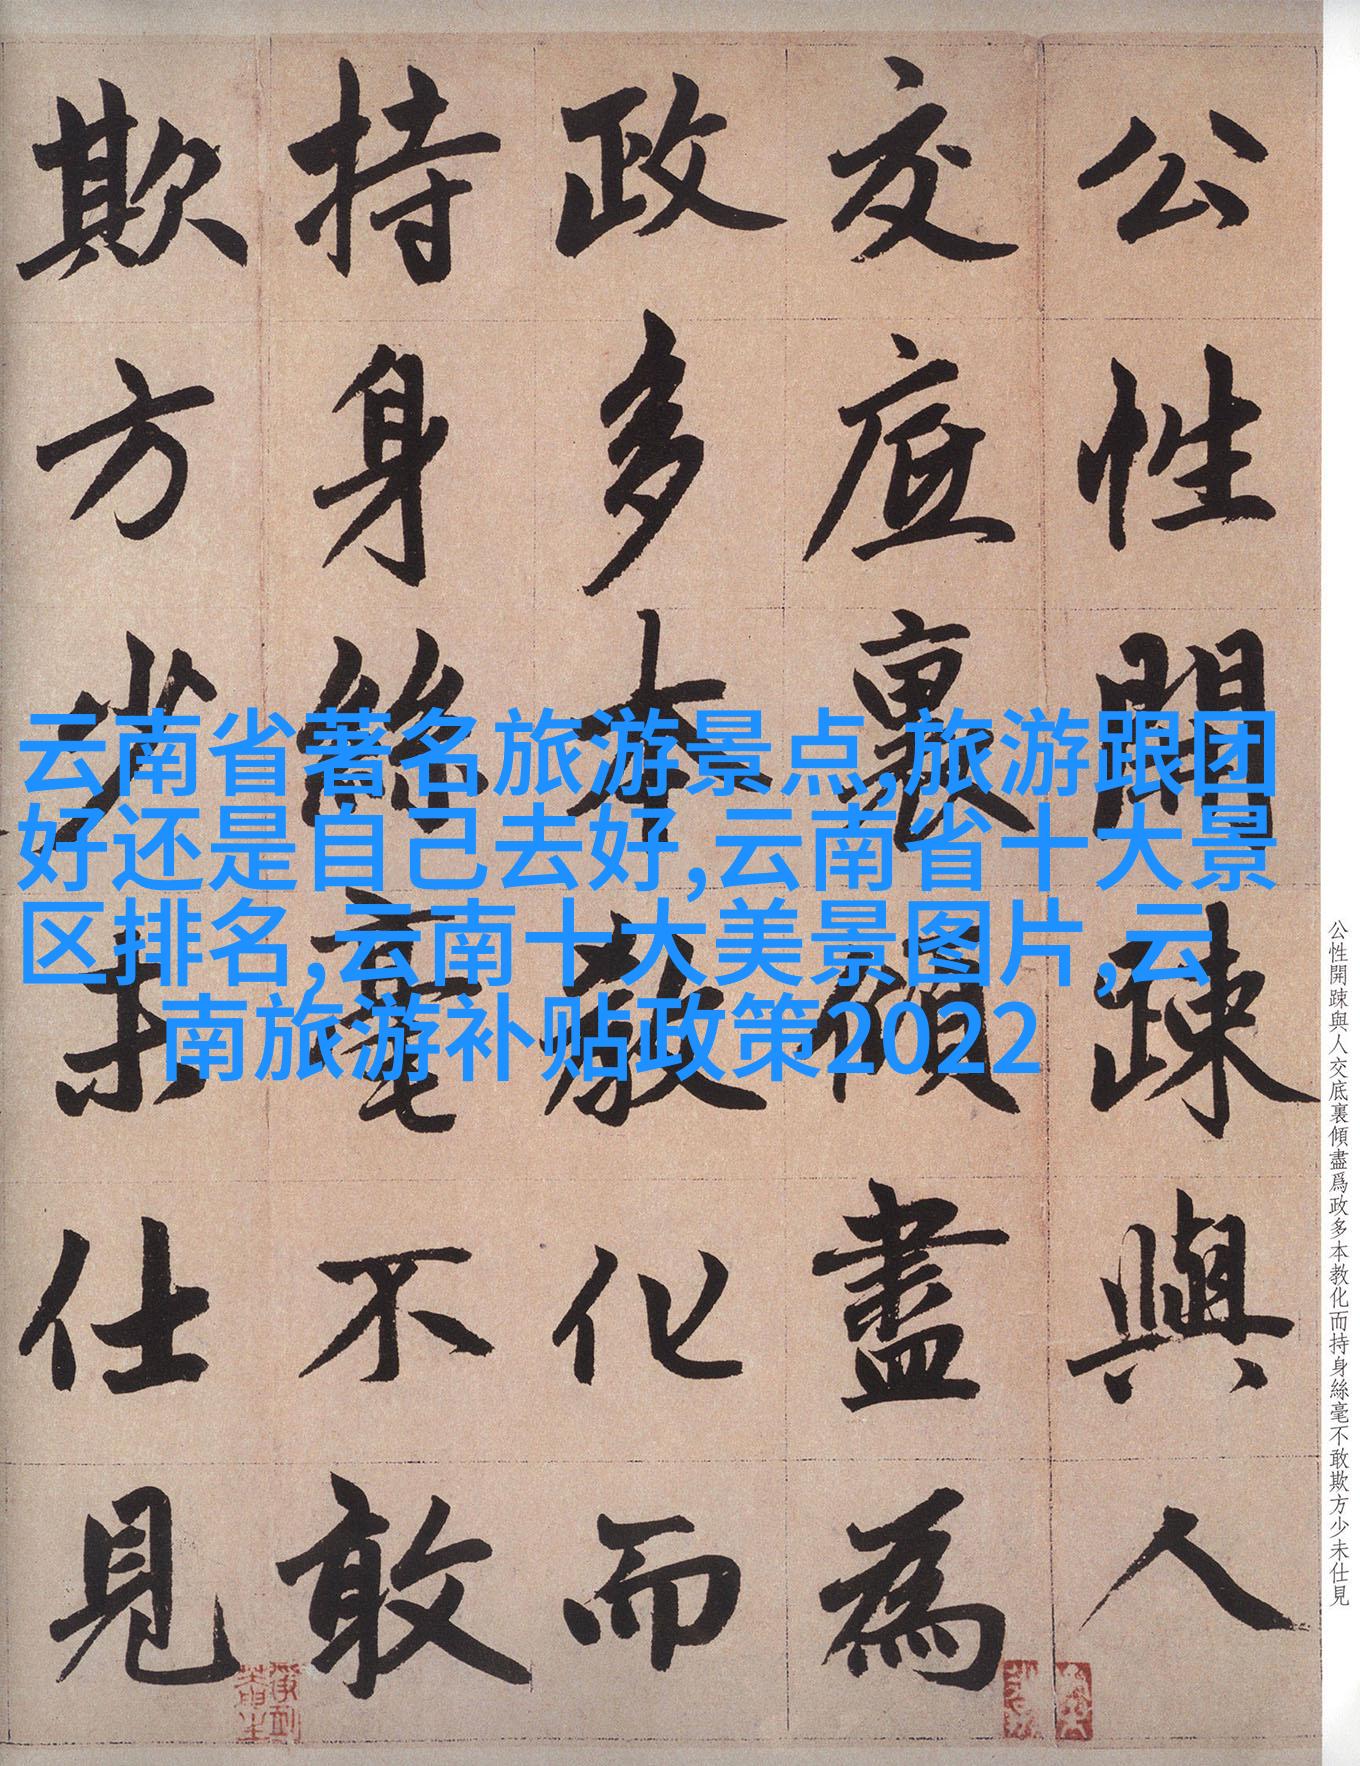 公性開踈與人
交底裏傾盡為
政多本教化而
持身絲毫不敢
欺方少未仕見
云南省著名旅游景点,旅游跟团
好还是自己去好,云南省十大景
区排名,云南十大美景图片,云
南旅游补贴政策2022
公性開踈與人交底裏傾盡爲政多本教化而持身絲毫不敢欺方少未仕見